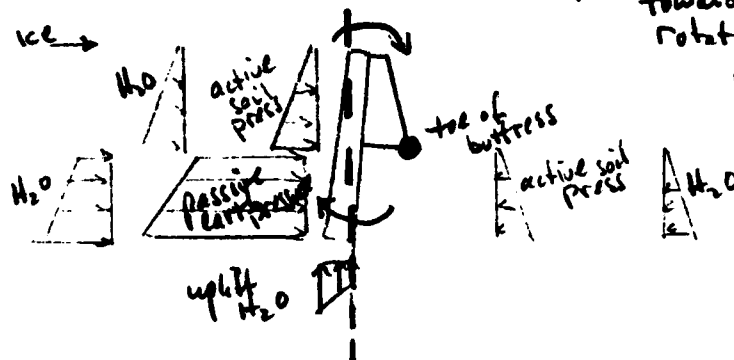 towar
rotat
ice
H₂O
active
soil
press
toe of
buttress
H₂O
passive
earth press
active soil
press
H₂O
uplift
H₂O